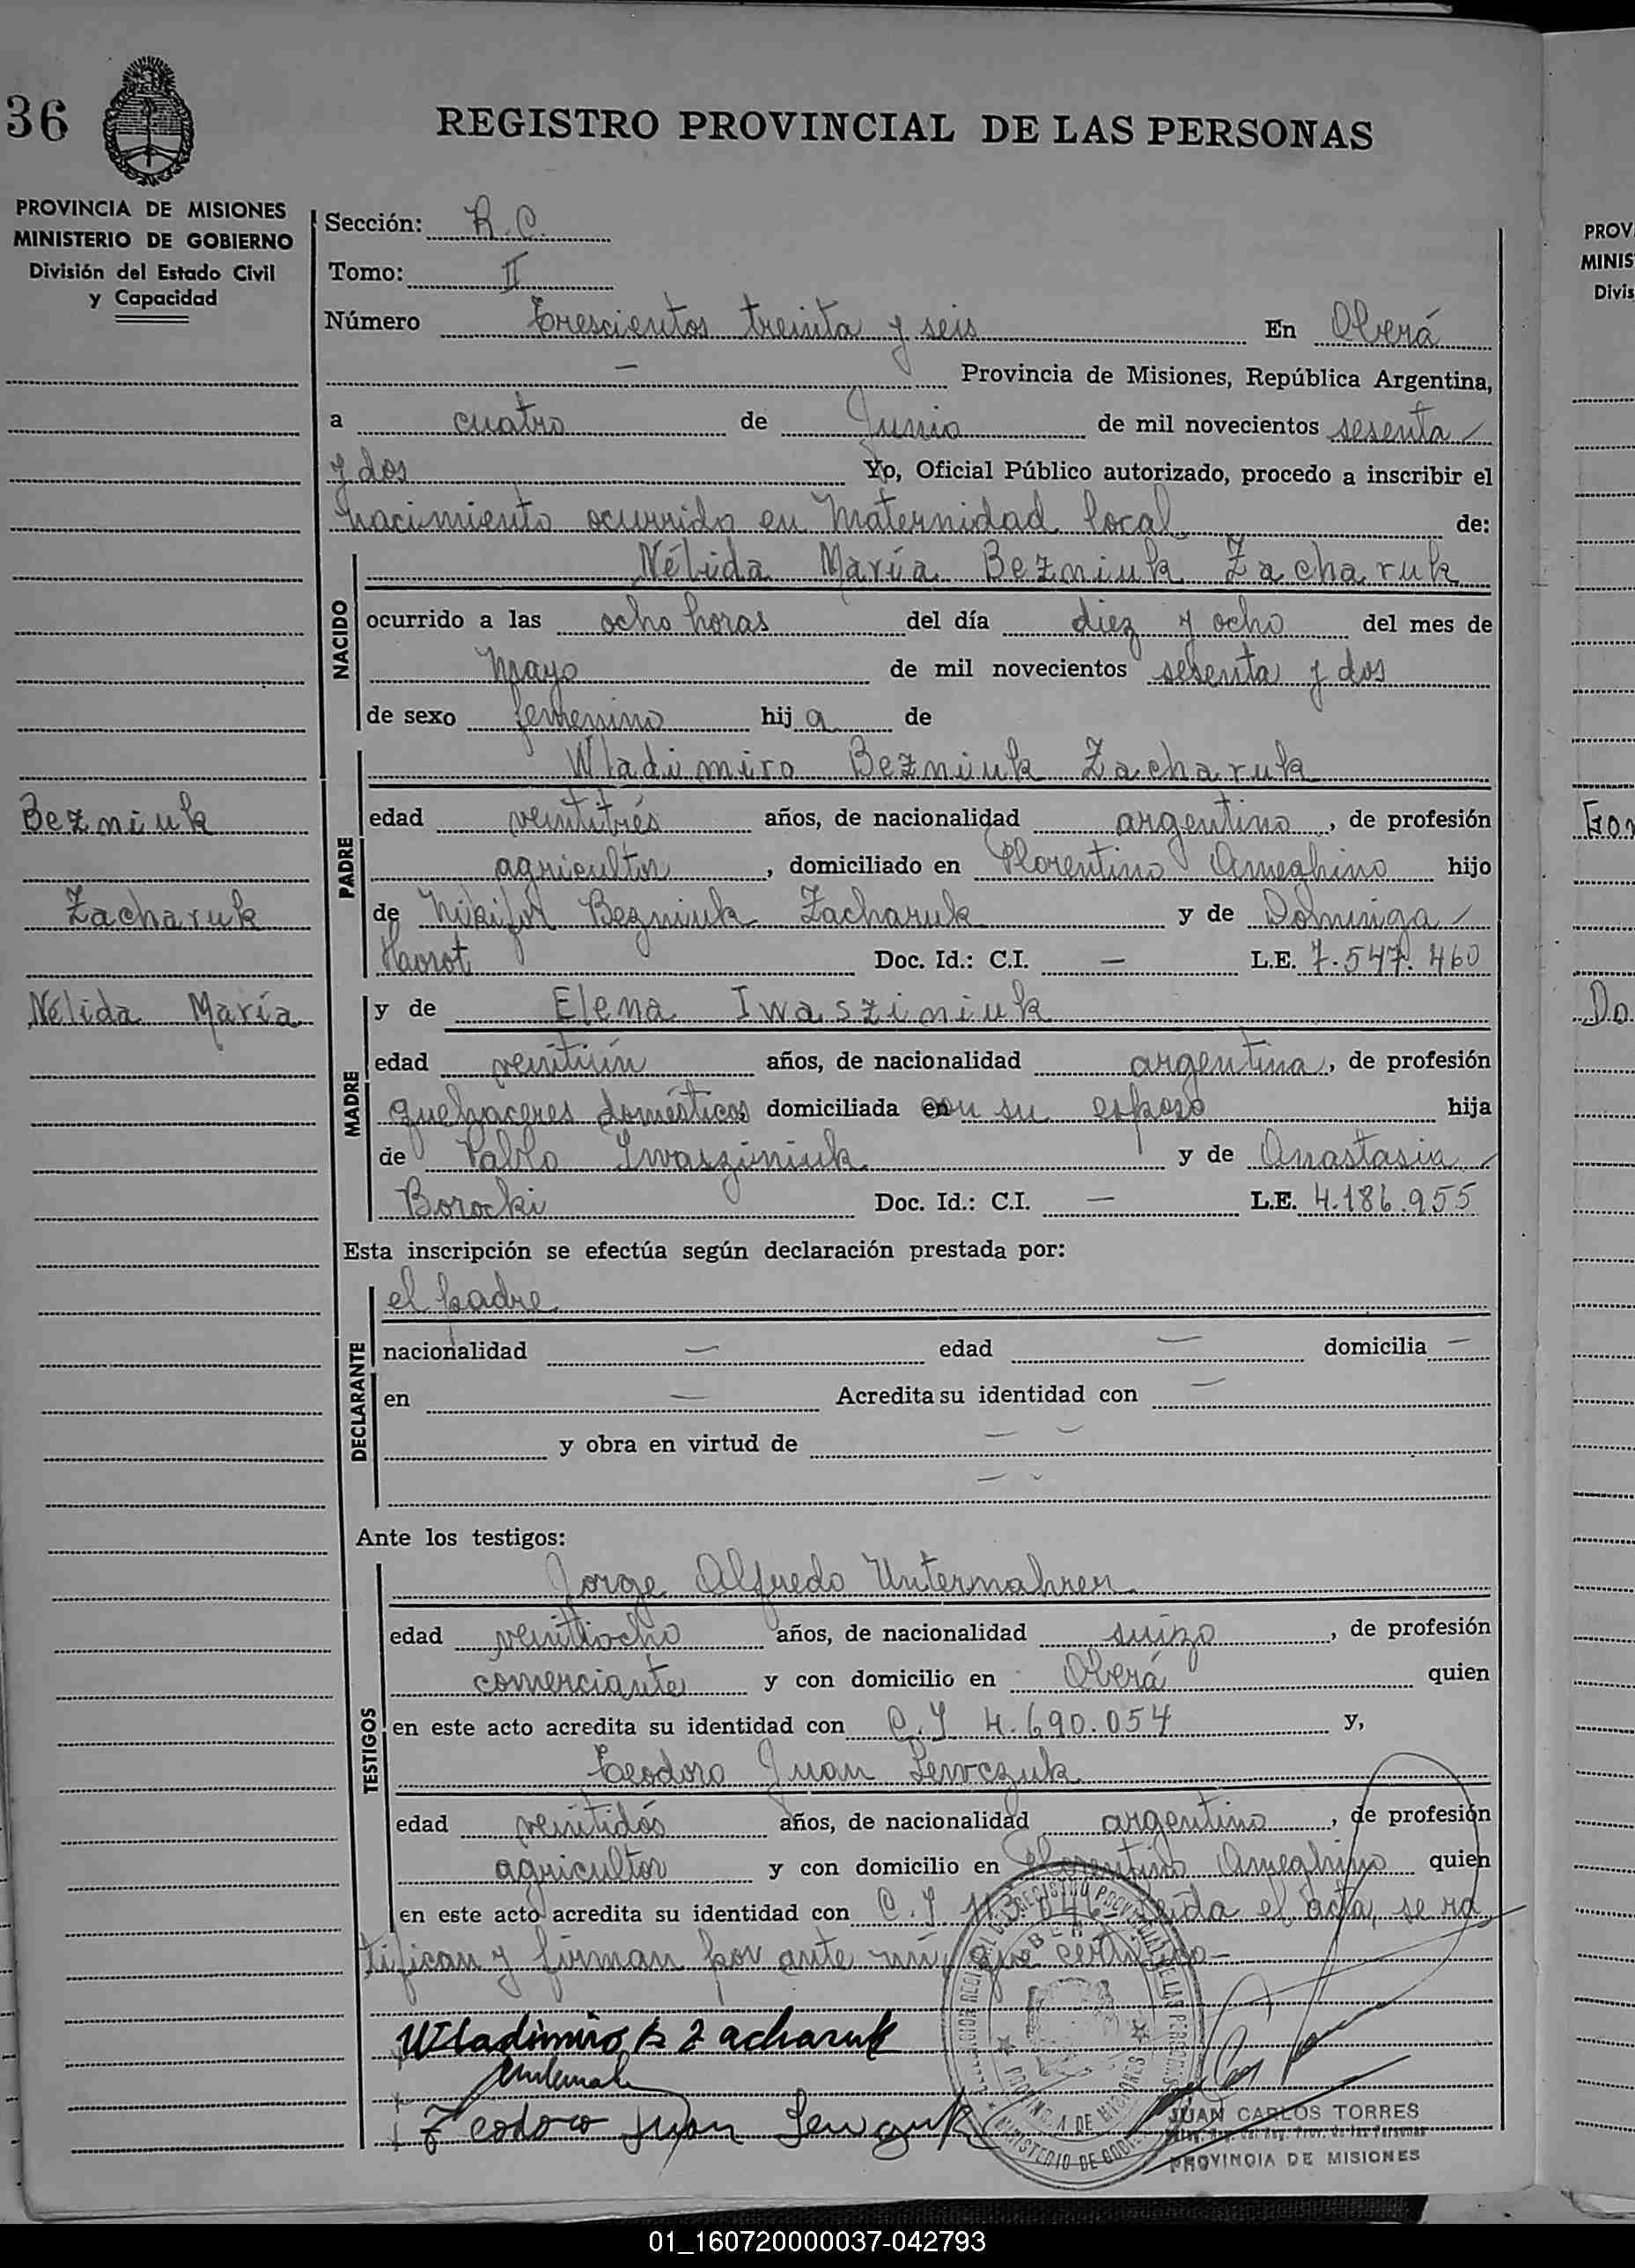 36
REGISTRO PROVINCIAL DE LAS PERSONAS
PROVINCIA DE MISIONES
MINISTERIO DE GOBIERNO
División del Estado Civil
y Capacidad
Sección: R.C.
Tomo: II
Número Trescientos treinta y seis En Oberá
— Provincia de Misiones, República Argentina,
a cuatro de Junio de mil novecientos sesenta
y dos Yo, Oficial Público autorizado, procedo a inscribir el
nacimiento ocurrido en Maternidad local de:
NACIDO
Nélida María Bezniuk Zacharuk
ocurrido a las ocho horas del día diez y ocho del mes de
Mayo de mil novecientos sesenta y dos
de sexo femenino hija de
PADRE
Wladimiro Bezniuk Zacharuk
Bezniuk
edad veintitrés años, de nacionalidad argentino, de profesión
agricultor, domiciliado en Florentino Ameghino hijo
Zacharuk
de Nikifor Bezniuk Zacharuk y de Dominga
Doc. Id.: C.I. — L.E. 7.547.460
Nélida María
MADRE
y de Elena Iwasziniuk
edad veintiún años, de nacionalidad argentina, de profesión
quehaceres domésticos domiciliada con su esposo hija
de Pablo Iwasziniuk y de Anastasia
Borocki Doc. Id.: C.I. — L.E. 4.186.955
Esta inscripción se efectúa según declaración prestada por:
DECLARANTE
el padre
nacionalidad — edad — domicilia —
en — Acredita su identidad con —
y obra en virtud de — —
Ante los testigos:
TESTIGOS
Jorge Alfredo Untermahren
edad veintiocho años, de nacionalidad suizo, de profesión
comerciante y con domicilio en Oberá quien
en este acto acredita su identidad con C.I 4.690.054 y,
Teodoro Juan Lewczuk
edad veintidós años, de nacionalidad argentino, de profesión
agricultor y con domicilio en Florentino Ameghino quien
en este acto acredita su identidad con C.I. Leída el acta, se ra
tifican y firman por ante mí, que certifico—
Wladimiro B Zacharuk
Teodoro Juan Lewczuk
JUAN CARLOS TORRES
PROVINCIA DE MISIONES
PROV
MINIS
Divis
01_160720000037-042793